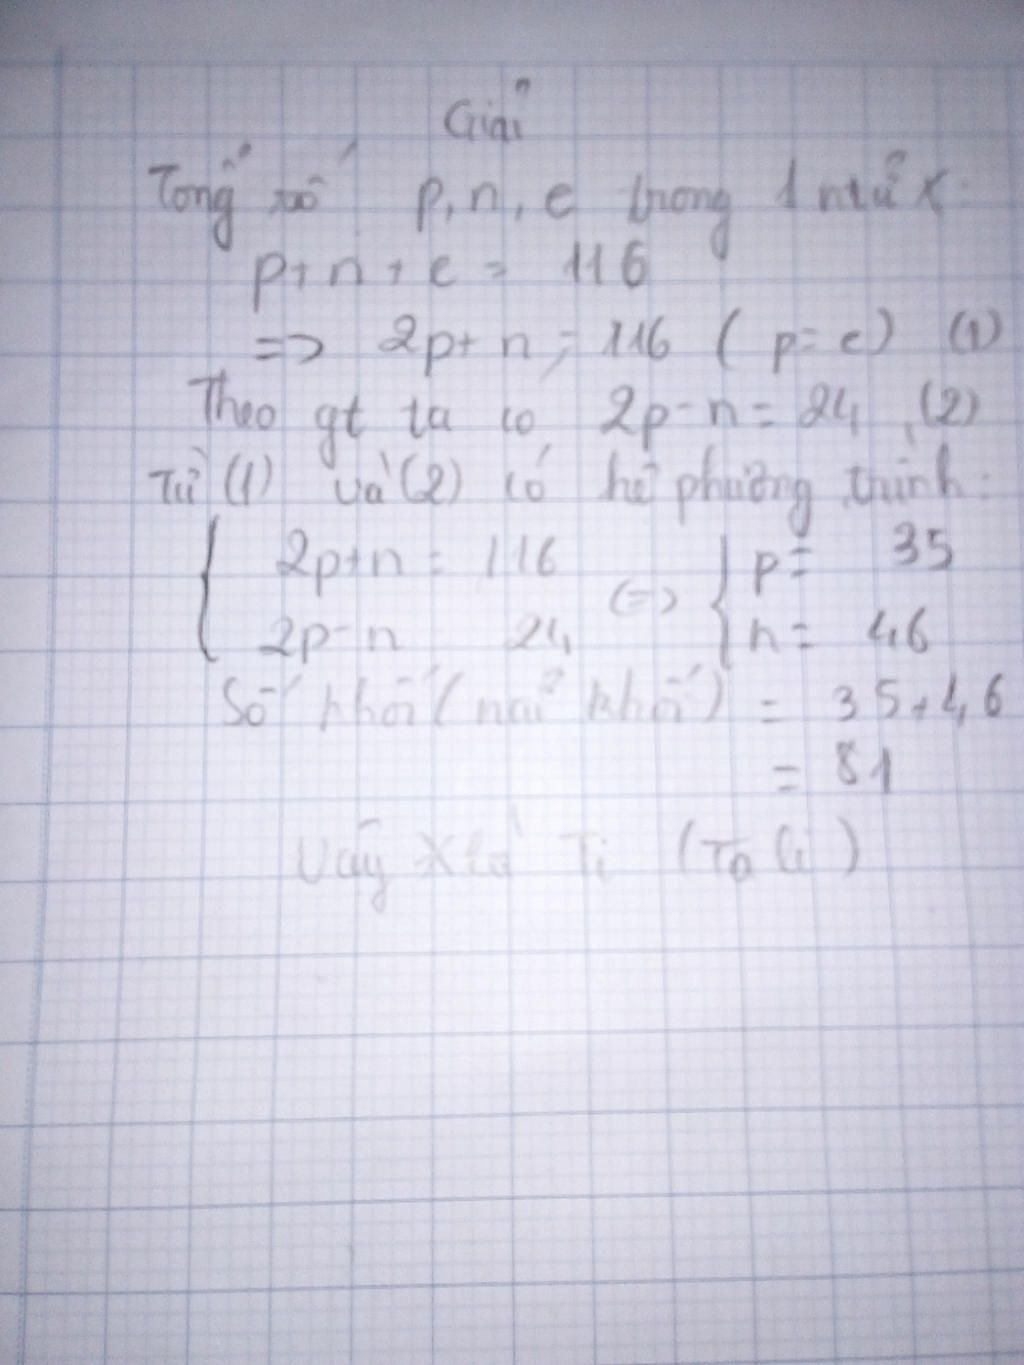 Giải
Tổng số p, n, e trong 1 ntử X:
p + n + e = 116
=> 2p + n = 116 ( p = e ) (1)
Theo gt ta có 2p - n = 24 (2)
Từ (1) và (2) có hệ phương trình:
{ 2p + n = 116 <=> { p = 35
2p - n 24 n = 46
Số khối ( ) = 35 + 46
= 81
Vậy X là Ti